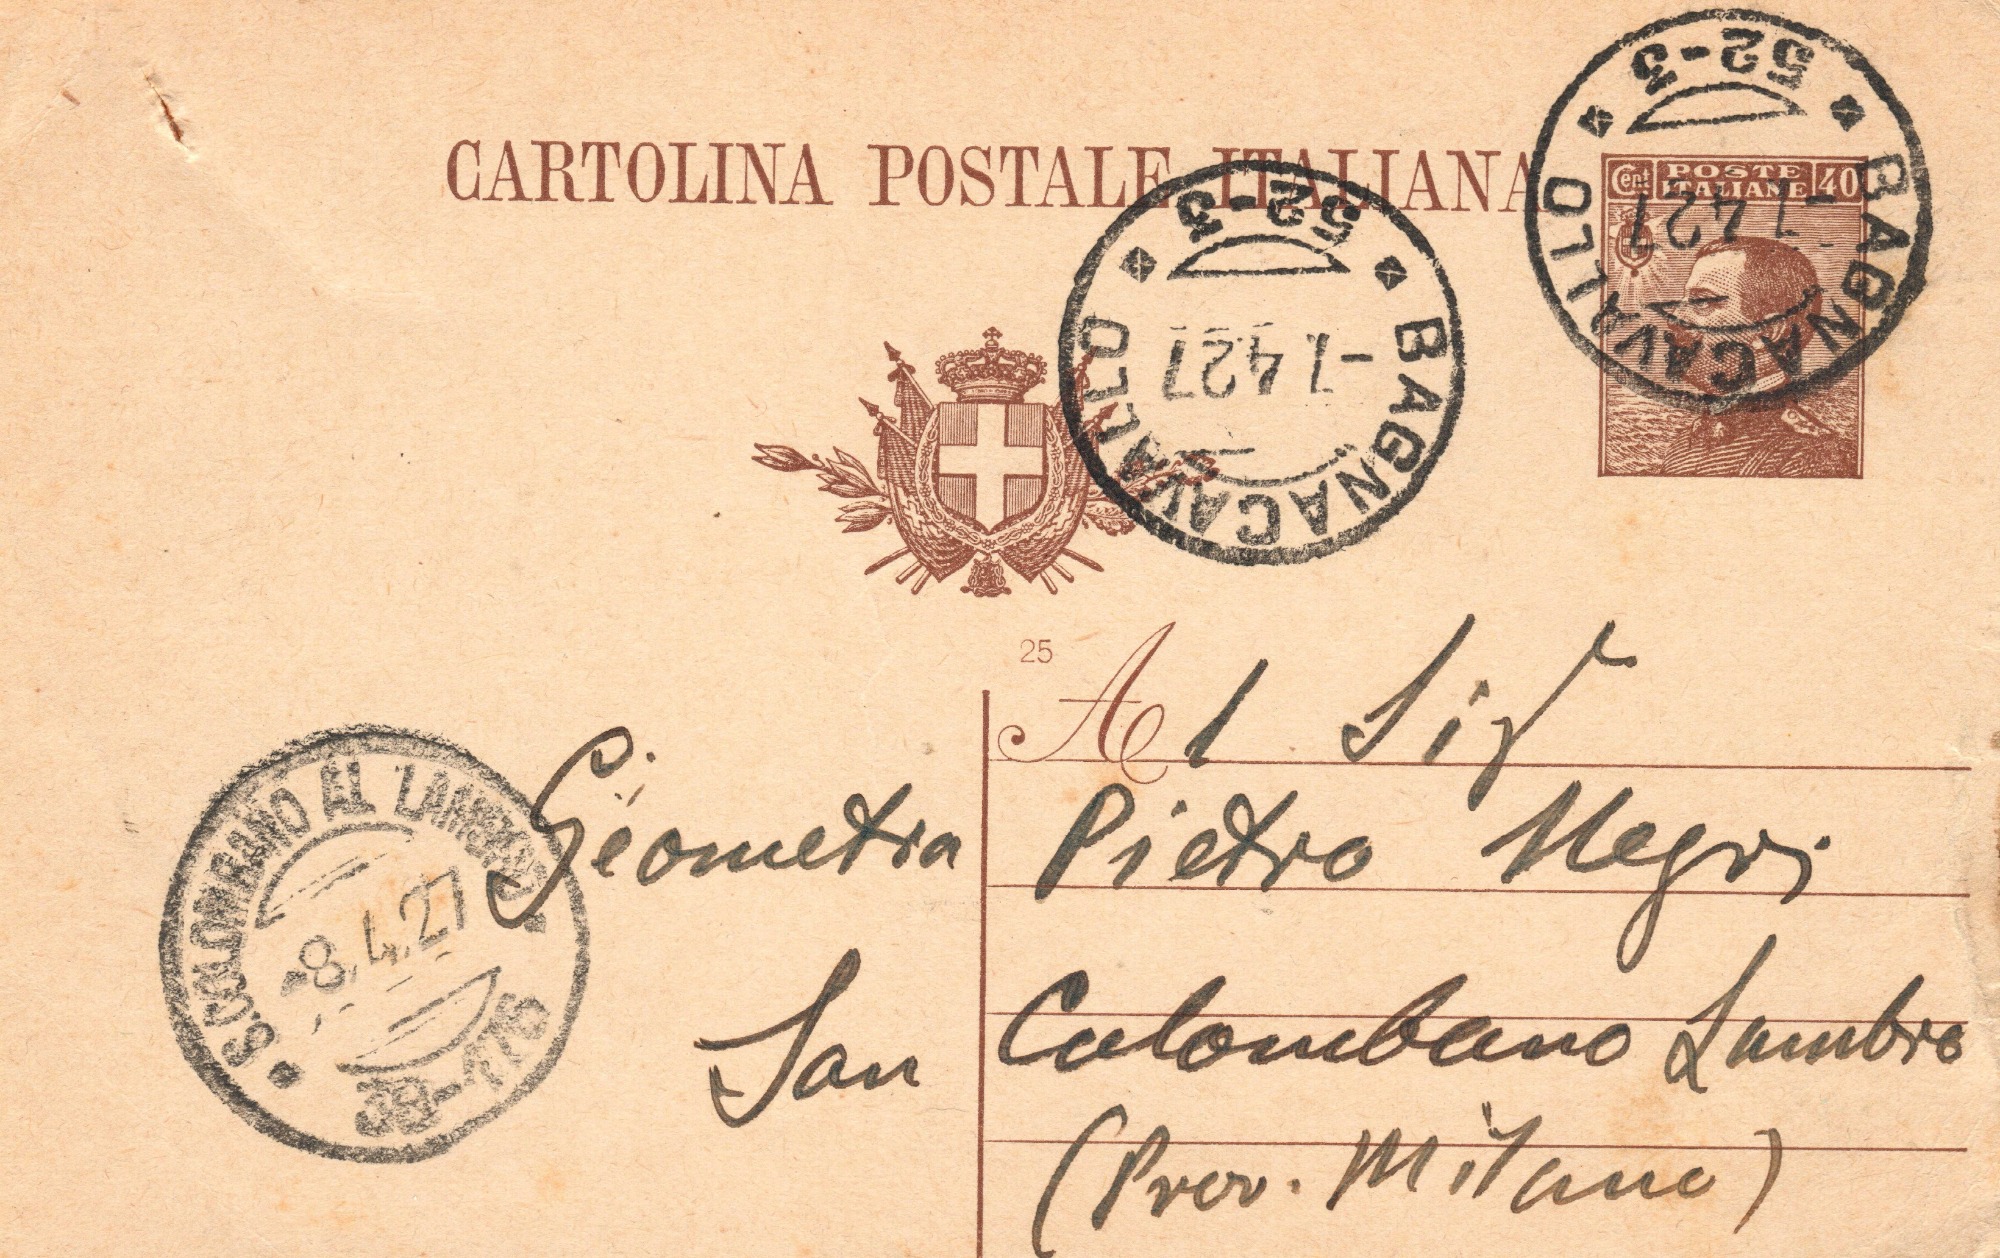 CARTOLINA POSTALE ITALIANA
Cent POSTE ITALIANE 40
BAGNACAVALLO
52-3
-7.4.27
BAGNACAVALLO
52-3
-7.4.27
25
Al Sigr
Geometra Pietro Negri
San Colombano Lambro
(Prov. Milano)
S. COLOMBANO AL LAMBRO
-8.4.27